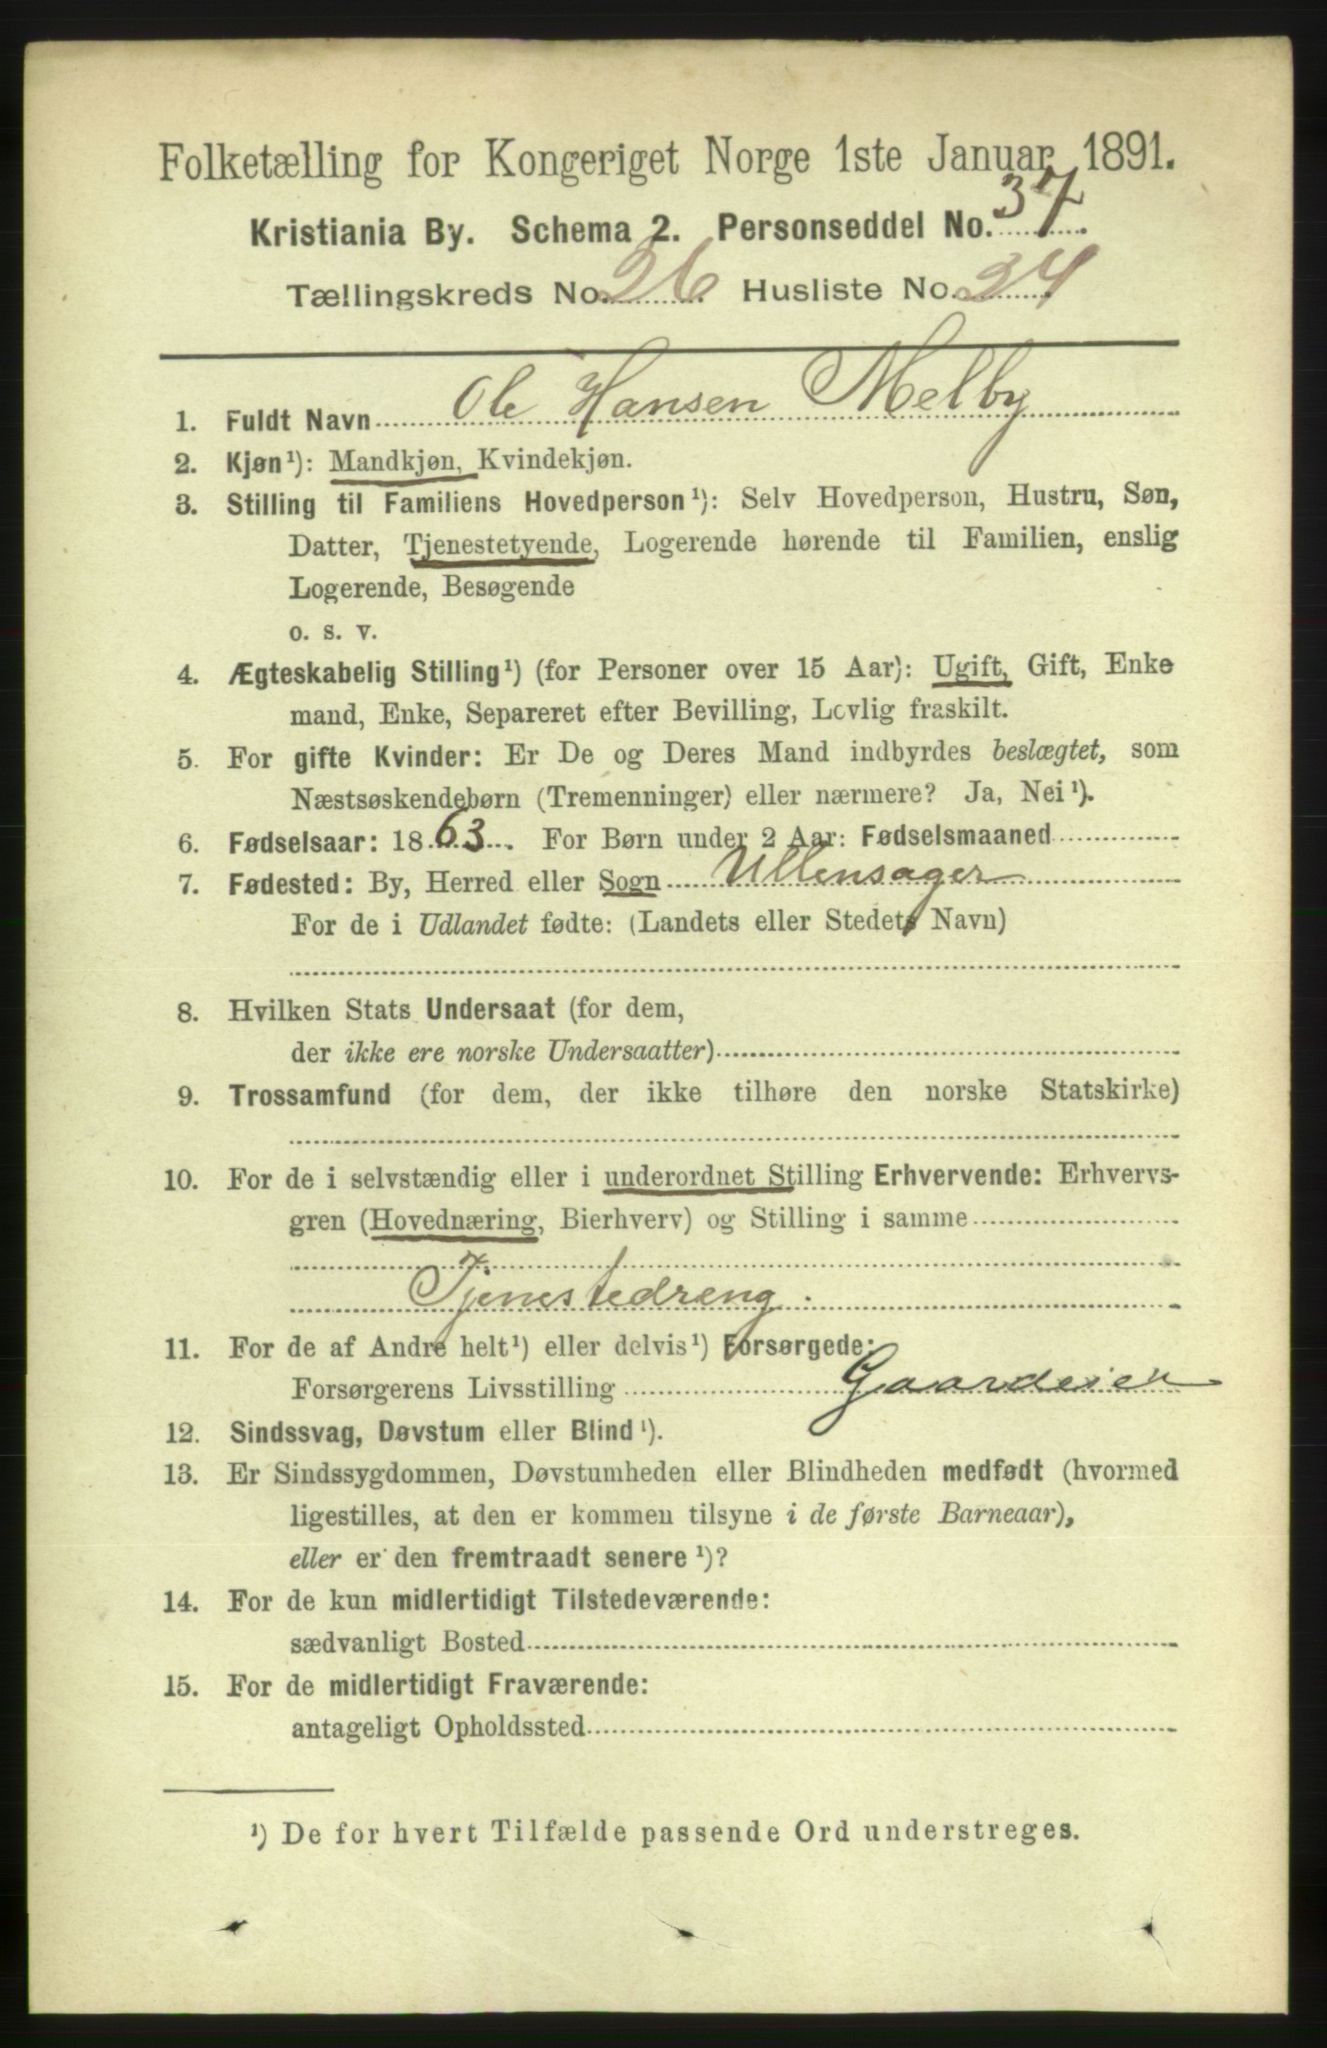 Folketælling for Kongeriget Norge 1ste Januar 1891.
Kristiania By. Schema 2. Personseddel No. 37.
Tællingskreds No. 26. Husliste No. 24
1. Fuldt Navn Ole Hansen Melby
2. Kjøn¹): Mandkjøn, Kvindekjøn.
3. Stilling til Familiens Hovedperson¹): Selv Hovedperson, Hustru, Søn,
Datter, Tjenestetyende, Logerende hørende til Familien, enslig
Logerende, Besøgende
o. s. v.
4. Ægteskabelig Stilling¹) (for Personer over 15 Aar): Ugift, Gift, Enke
mand, Enke, Separeret efter Bevilling, Lovlig fraskilt.
5. For gifte Kvinder: Er De og Deres Mand indbyrdes beslægtet, som
Næstsøskendebørn (Tremenninger) eller nærmere? Ja, Nei¹).
6. Fødselsaar: 1863. For Børn under 2 Aar: Fødselsmaaned
7. Fødested: By, Herred eller Sogn Ullensager
For de i Udlandet fødte: (Landets eller Stedets Navn)
8. Hvilken Stats Undersaat (for dem,
der ikke ere norske Undersaatter)
9. Trossamfund (for dem, der ikke tilhøre den norske Statskirke)
10. For de i selvstændig eller i underordnet Stilling Erhvervende: Erhvervs-
gren (Hovednæring, Bierhverv) og Stilling i samme
Tjenestedreng.
11. For de af Andre helt¹) eller delvis¹) Forsørgede:
Forsørgerens Livsstilling Gaardeier
12. Sindssvag, Døvstum eller Blind¹).
13. Er Sindssygdommen, Døvstumheden eller Blindheden medfødt (hvormed
ligestilles, at den er kommen tilsyne i de første Barneaar),
eller er den fremtraadt senere¹)?
14. For de kun midlertidigt Tilstedeværende:
sædvanligt Bosted
15. For de midlertidigt Fraværende:
antageligt Opholdssted
¹) De for hvert Tilfælde passende Ord understreges.